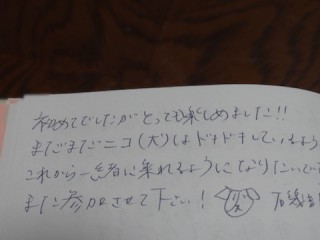 初めてでしたがとっても楽しめました!!
まだまだニコ(犬)はドキドキしているよう
これから一緒に乗れるようになりたいで
また参加させて下さい!